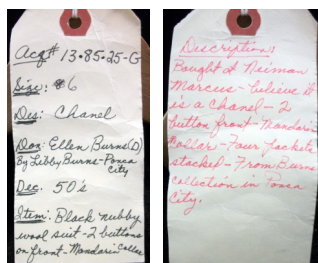 Acq# 13.85.25-G
Size: #6
Des: Chanel
Don: Ellen Burns(D)
By Libby Burns-Ponca
City
Dec. 50's
Item: Black nubby
wool suit-2 buttons
on front-Mandarin Collar
Description:
Bought @ Neiman
Marcus-believe it
is a Chanel-2
button front-Mandarin
Collar-Four pockets
stacked-From Burns
collection in Ponca
City.